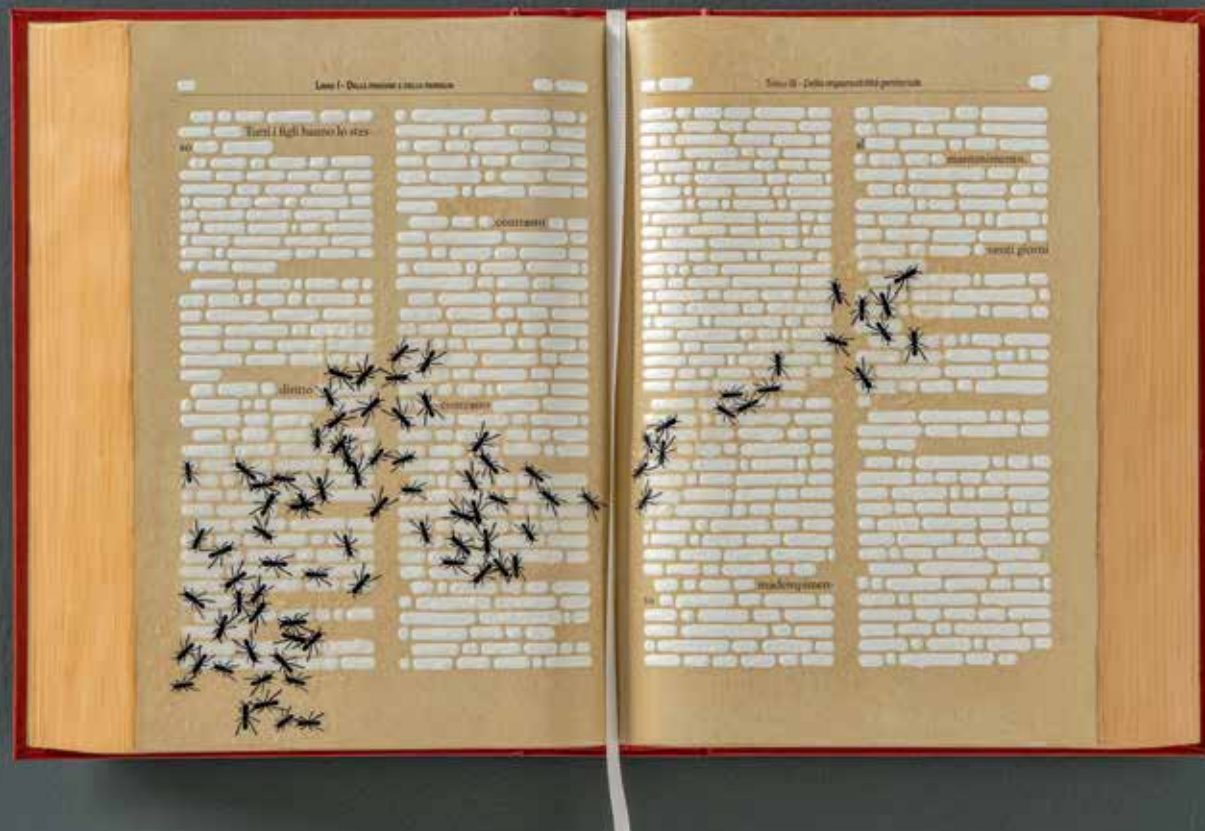 Libro I - Delle persone e della famiglia
Tutti i figli hanno lo stes-
so
diritto
contrario
contrario
Titolo IX - Della responsabilità genitoriale
inadempimen-
to
al
mantenimento.
venti giorni